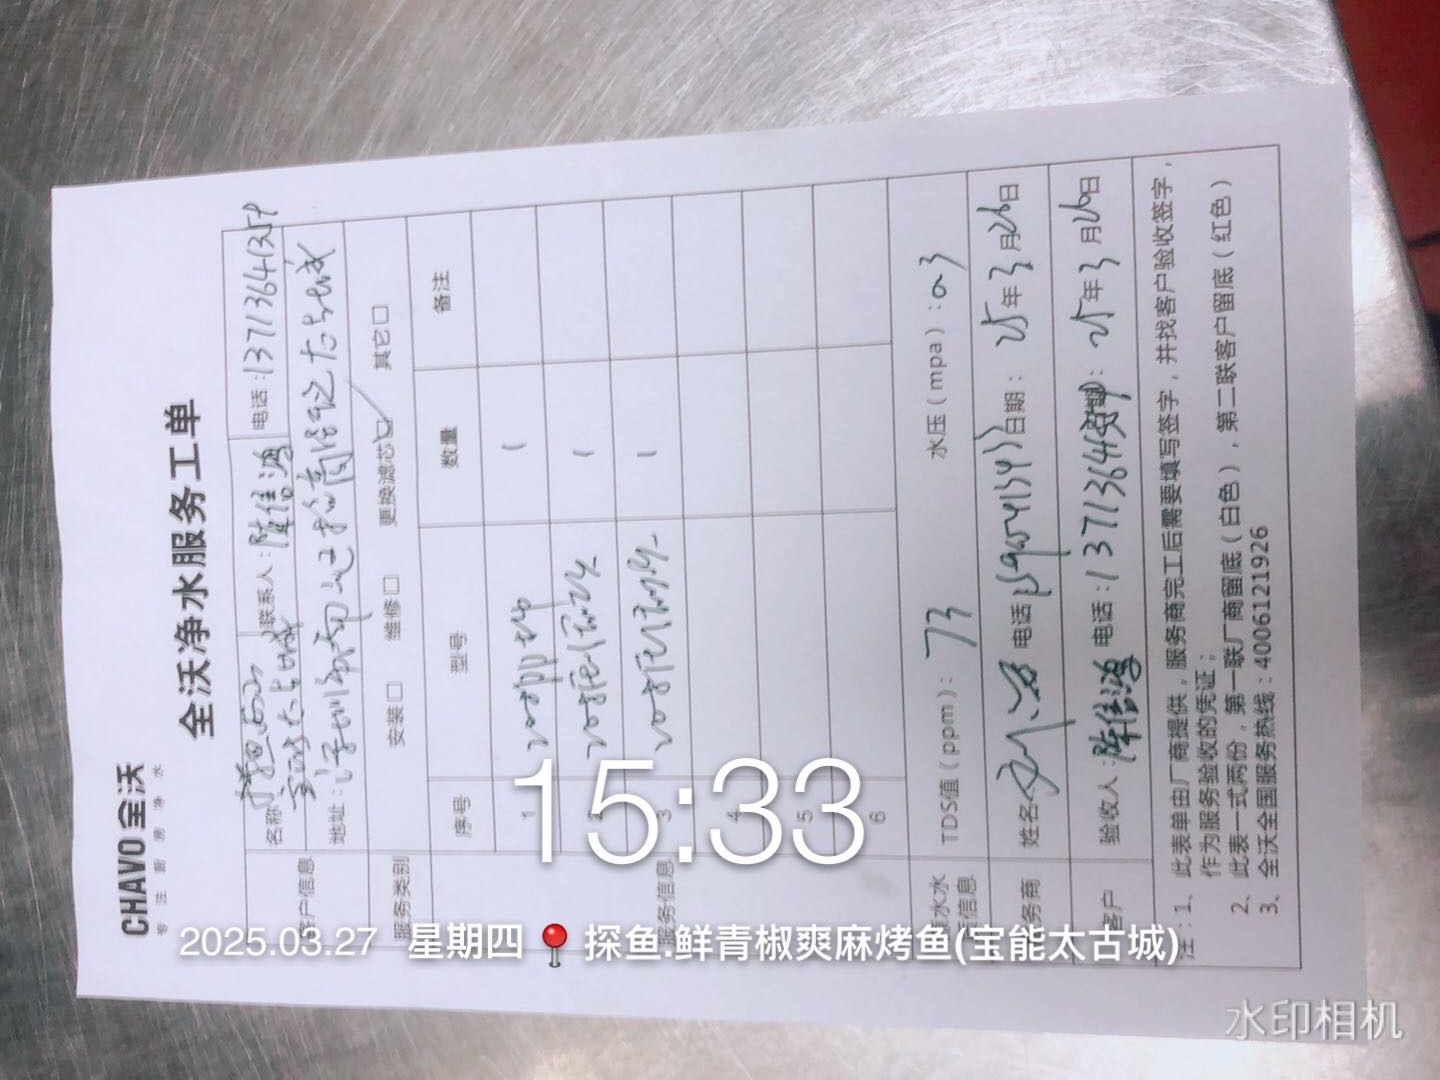 CHAVO 全沃
专注厨房净水
全沃净水服务工单
客户信息 名称 联系人:陈佳鸿 电话:13713641359
宝能太古城
地址:深圳
服务类别 安装□ 维修□ 更换滤芯☑ 其它□
服务信息 序号 型号 数量 备注
1 1
2 1
3 1
4
5
6
水 信息 TDS值(ppm):73 水压(mpa):0.3
务商 姓名 电话 日期: 25年3月26日
客户 验收人:陈佳鸿 电话:13713641359 日期: 25年3月26日
注:1、此表单由厂商提供,服务商完工后需要填写签字,并找客户验收签字,
作为服务验收的凭证;
2、此表一式两份,第一联厂商留底(白色),第二联客户留底(红色)
3、全沃全国服务热线:4006121926
15:33
2025.03.27 星期四 探鱼.鲜青椒爽麻烤鱼(宝能太古城)
水印相机